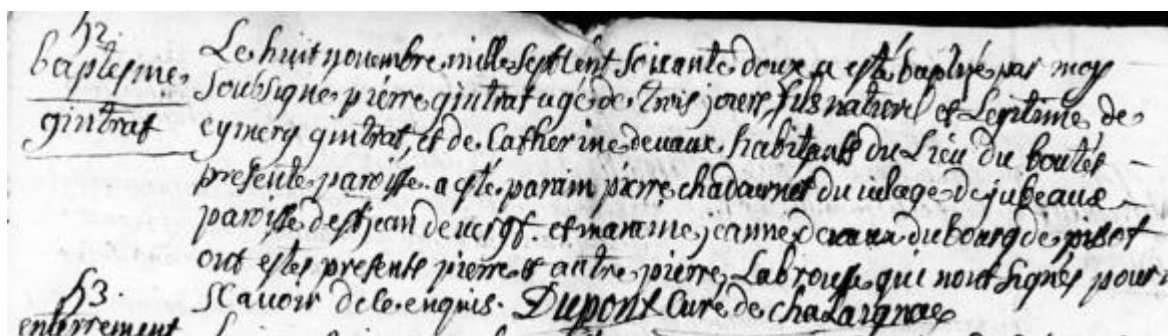 h2.
baptesme
gintrat
Le huit novembre mille sept cent soixante doux a esté baptisé par moy
soubsigné pierre gintrat agé de trois jours, fils naturel et legitime de
eymery gintrat, et de Catherine devaux habitants du Lieu du boutés
presente paroisse. a esté parain pierre chadournet du vilage de jubeaux
paroisse de st jean de et maraine, jeanne devaux du bourg de
ont estés presents pierre & autre pierre, Labrousse qui n'ont signés pour n
scavoir de ce enquis. Dupont Curé de chalaignac
h3.
enterrement